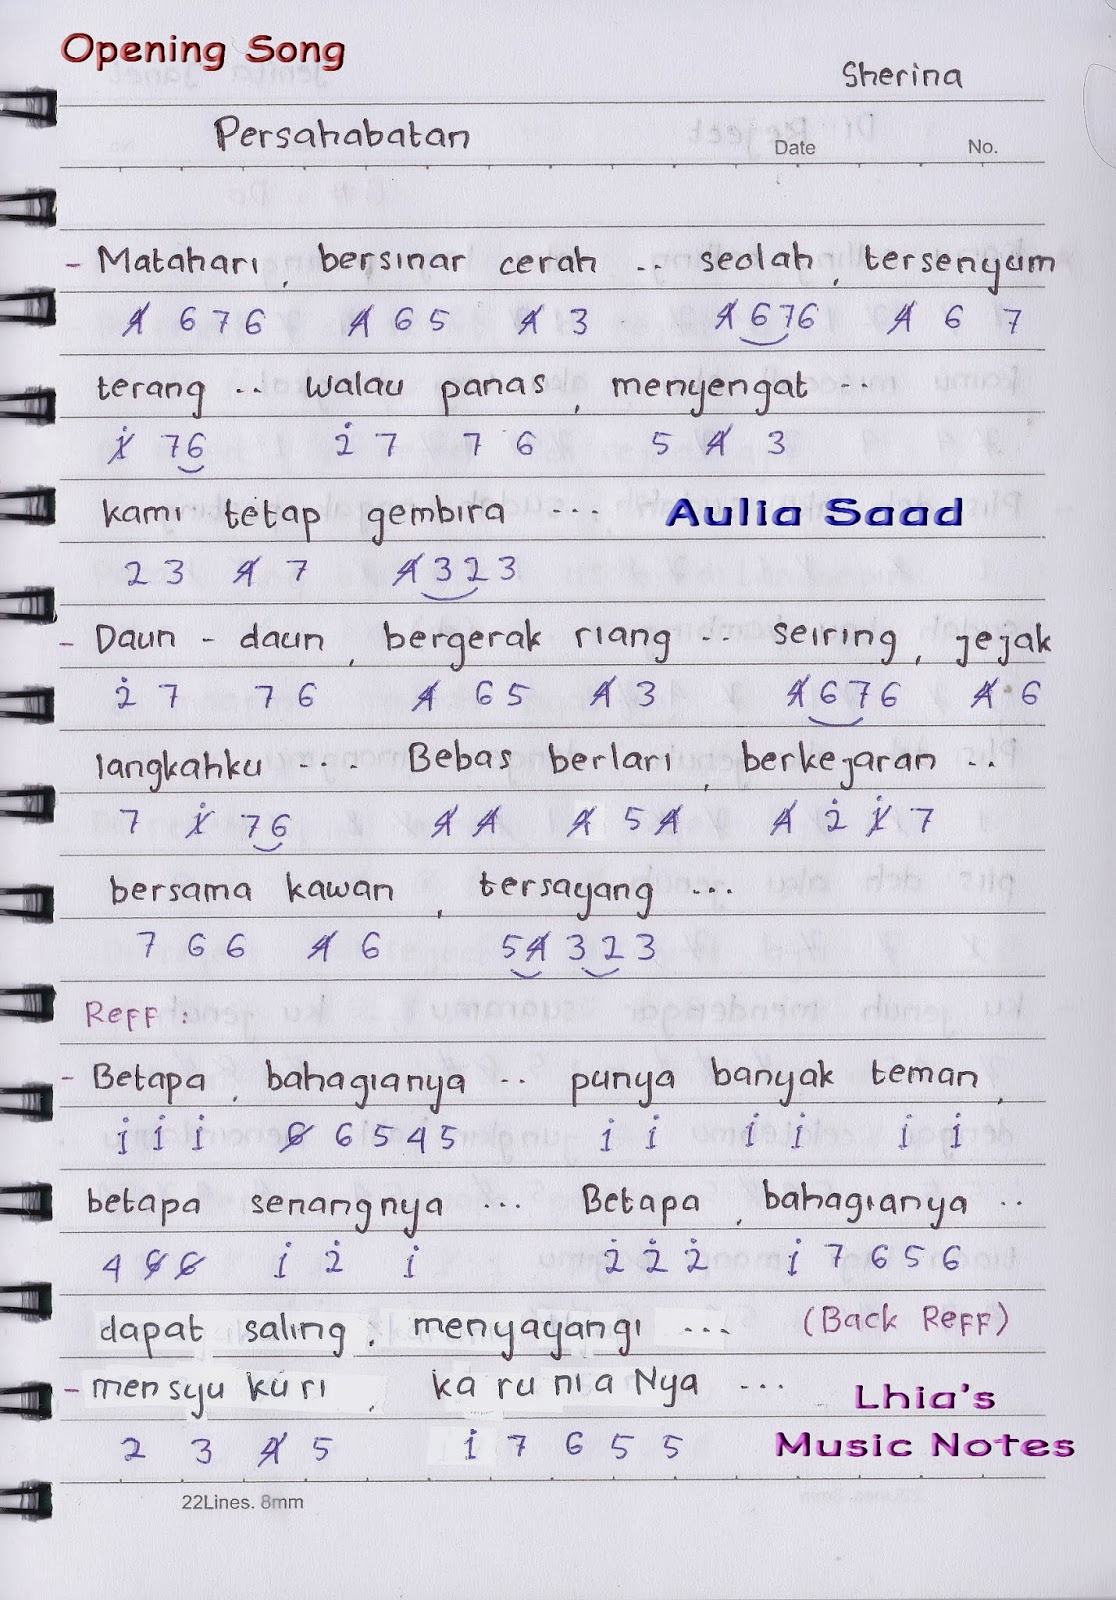 Opening Song
Sherina
Persahabatan
Date No.
- Matahari, bersinar cerah .. seolah, tersenyum
4̸ 6 7 6 4̸ 6 5 4̸ 3 4̸ 6 7 6 4̸ 6 7
terang .. walau panas, menyengat ..
1̸̇ 7 6 2̇ 7 7 6 5 4̸ 3
kami tetap gembira ... Aulia Saad
2 3 4̸ 7 4̸ 3 2 3
- Daun - daun, bergerak riang .. seiring, jejak
2̇ 7 7 6 4̸ 6 5 4̸ 3 4̸ 6 7 6 4̸ 6
langkahku .... Bebas berlari, berkejaran ...
7 1̸̇ 7 6 4̸ 4̸ 4̸ 5 4̸ 4̸ 2̇ 1̸̇ 7
bersama kawan, tersayang ...
7 6 6 4̸ 6 5 4̸ 3 2 3
Reff :
- Betapa, bahagianya .. punya banyak teman,
1̇ 1̇ 1̇ 6̸ 6 5 4 5 1̇ 1̇ 1̇ 1̇ 1̇ 1̇
betapa senangnya ... Betapa, bahagianya ..
4 6̸ 6̸ 1̇ 2̇ 1̇ 2̇ 2̇ 2̇ 1̇ 7 6 5 6
dapat saling, menyayangi ... (Back Reff)
- mensyu kuri, ka ru nia Nya ... Lhia's
2 3 4̸ 5 1̇ 7 6 5 5 Music Notes
22Lines. 8mm